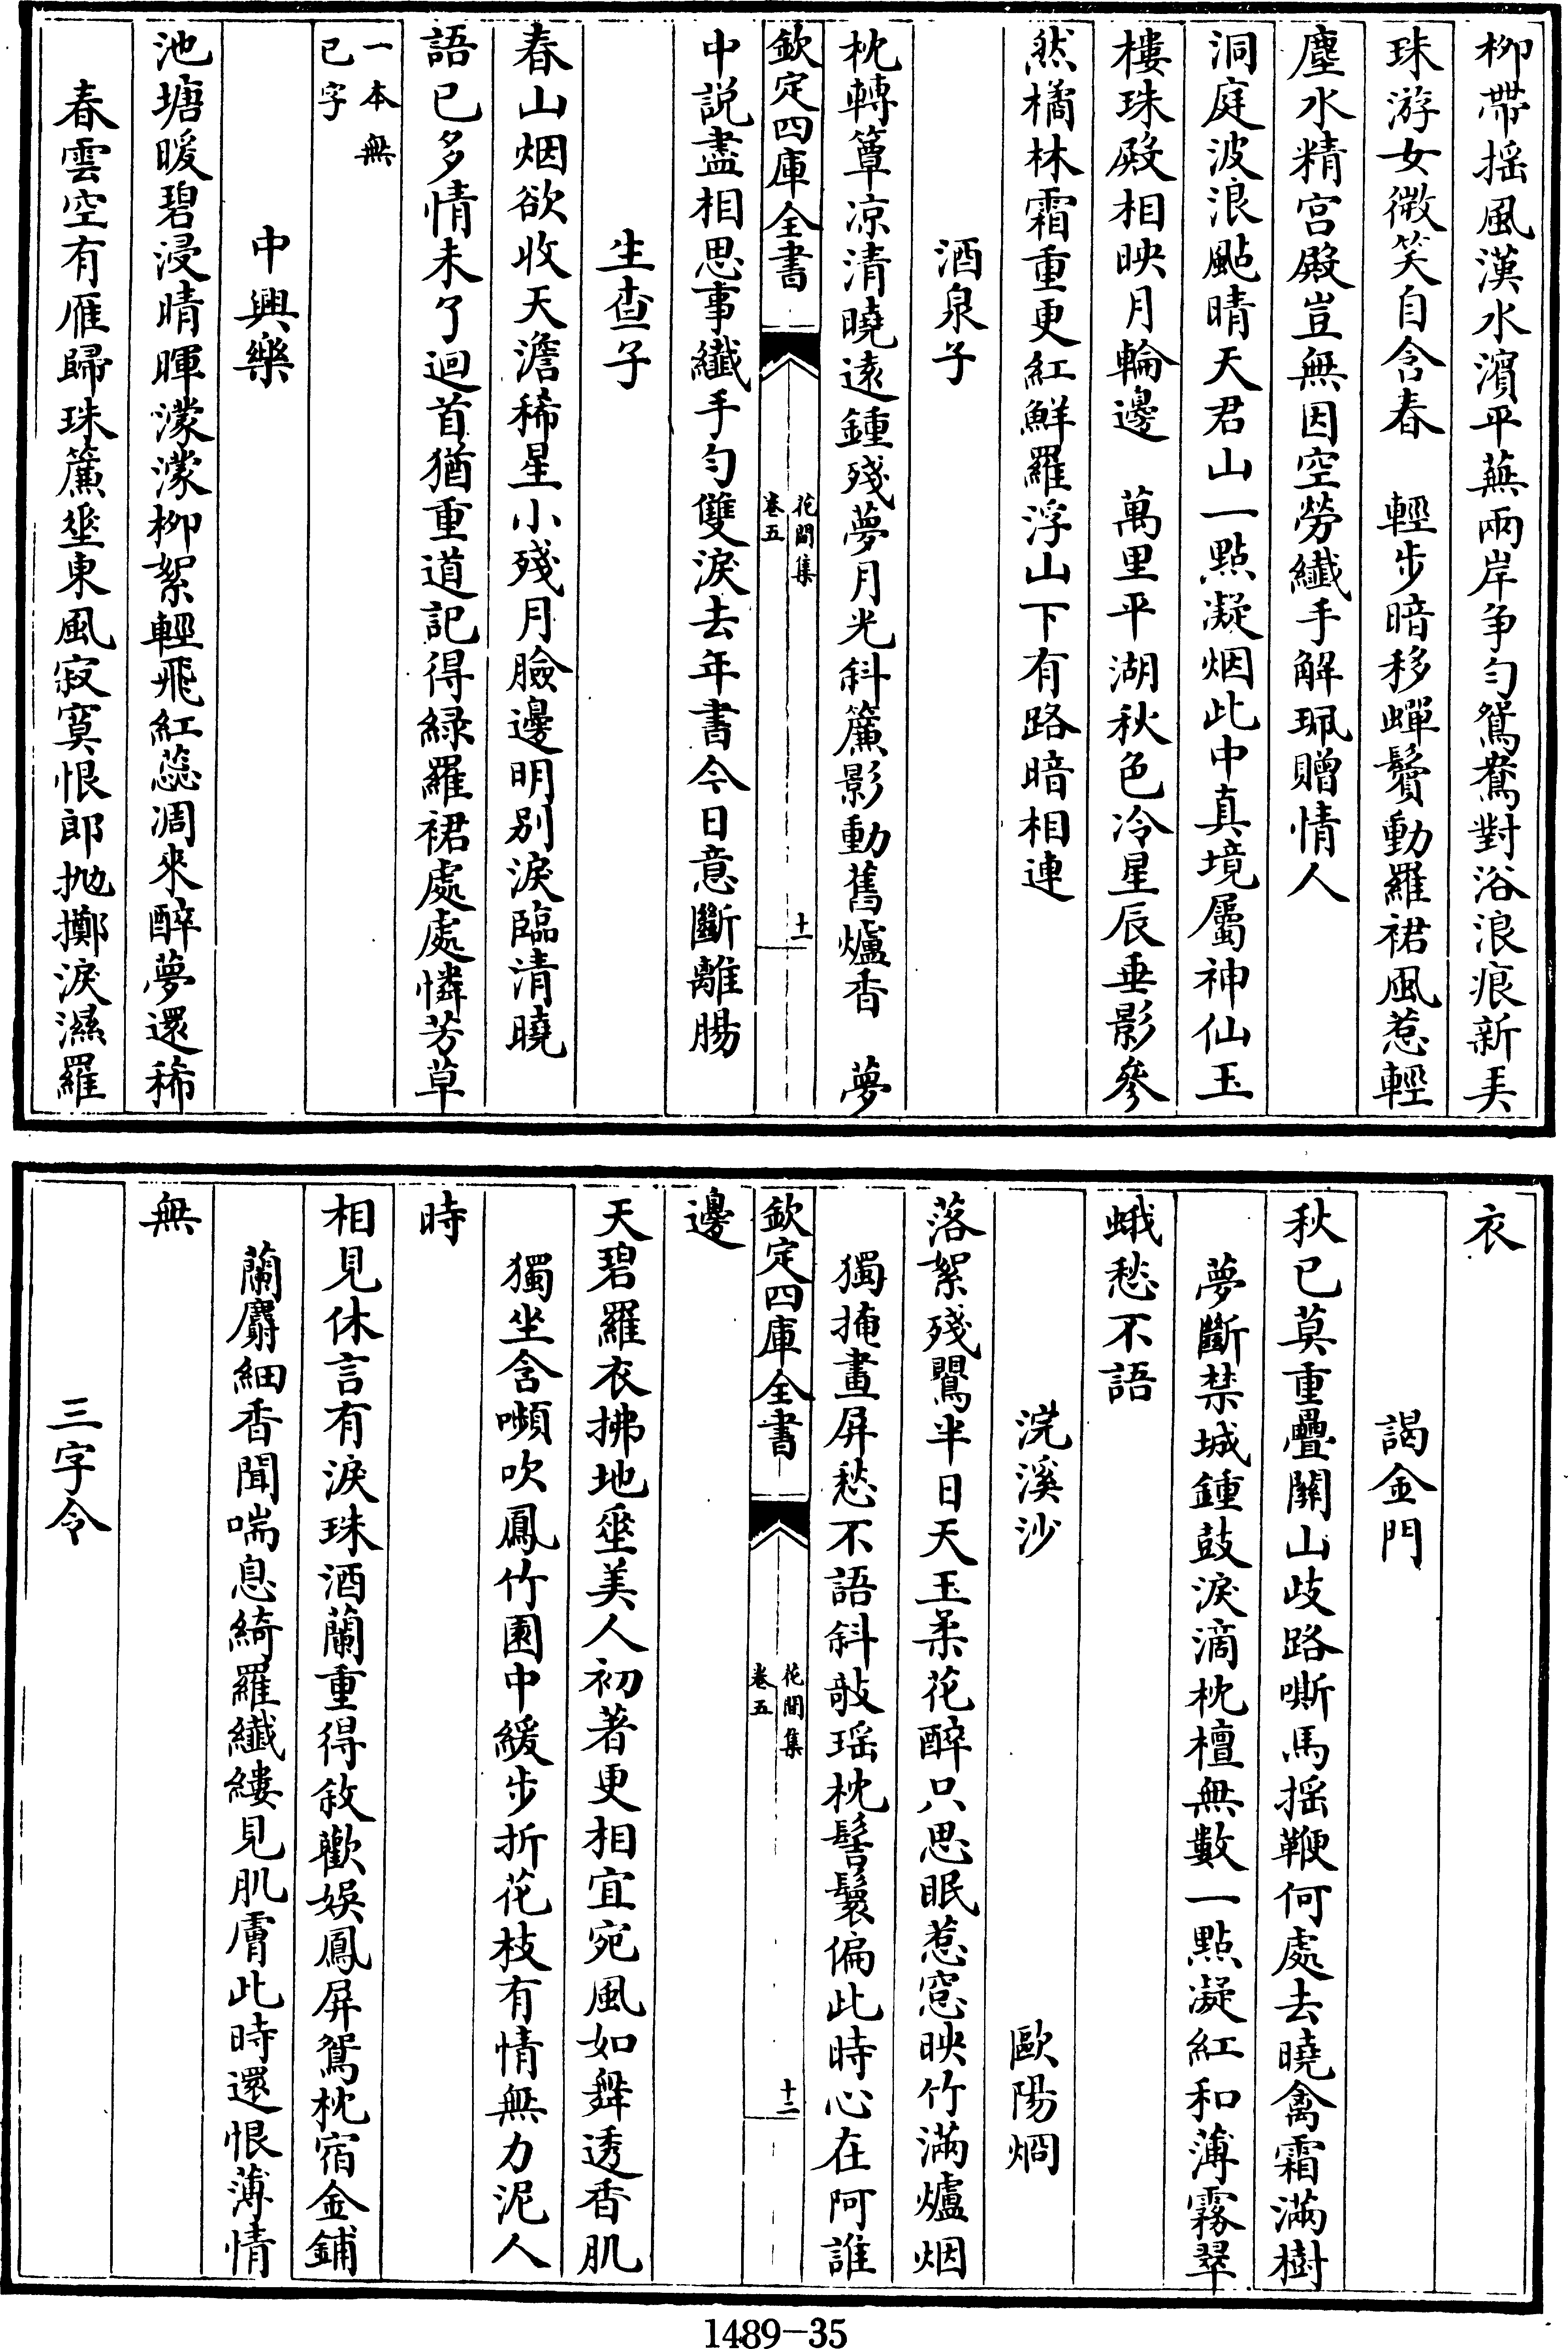 柳帶揺風漢水濱平蕪兩岸争匀鴛鴦對浴浪痕新弄
珠游女微笑自含春　輕步暗移蟬鬢動羅裙風惹輕
塵水精宫殿豈無因空勞纖手解珮贈情人
洞庭波浪颭晴天君山一點凝烟此中真境屬神仙玉
樓珠殿相映月輪邊　萬里平湖秋色冷星辰垂影參
然橘林霜重更紅鮮羅浮山下有路暗相連
酒泉子
枕轉簟凉清曉遠鍾殘夢月光斜簾影動舊爐香　夢
欽定四庫全書
花間集
卷五
十一
中説盡相思事纖手匀雙淚去年書今日意斷離腸
生查子
春山烟欲收天澹稀星小殘月臉邊明别淚臨清曉
語已多情未了迴首猶重道記得緑羅裙處處憐芳草
一本無
已字
中興樂
池塘暖碧浸晴暉濛濛柳絮輕飛紅蕊凋來醉夢還稀
春雲空有雁歸珠簾垂東風寂寞恨郎抛擲淚濕羅
衣
謁金門
秋已莫重疊關山歧路嘶馬揺鞭何處去曉禽霜滿樹
夢斷禁城鍾鼓淚滴枕檀無數一點凝紅和薄霧翠
蛾愁不語
浣溪沙　歐陽烱
落絮殘鶯半日天玉柔花醉只思眠惹窓映竹滿爐烟
獨掩畫屏愁不語斜敧瑶枕髻鬟偏此時心在阿誰
欽定四庫全書
花間集
卷五
十二
邊
天碧羅衣拂地垂美人初著更相宜宛風如舞透香肌
獨坐含嚬吹鳳竹園中緩步折花枝有情無力泥人
時
相見休言有淚珠酒闌重得敘歡娱鳳屏鴛枕宿金鋪
蘭麝細香聞喘息綺羅纖縷見肌膚此時還恨薄情
無
三字令
1489-35